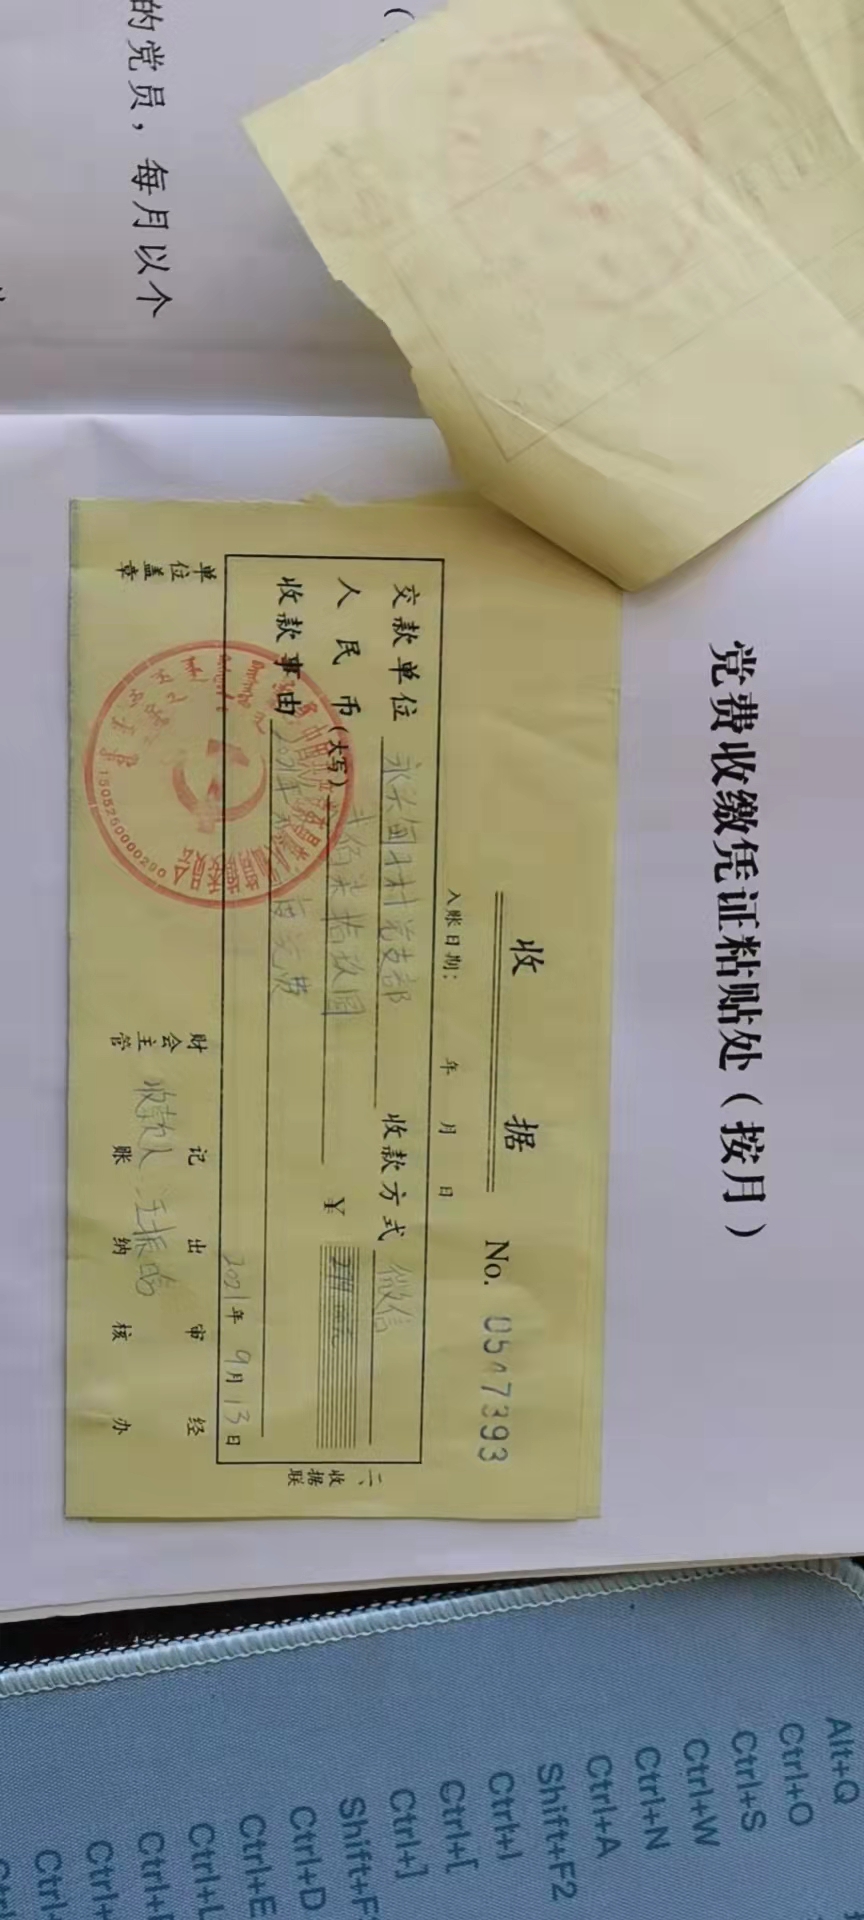 的党员，每月以个
党费收缴凭证粘贴处（按月）
收 据
No. 0547393
入账日期： 年 月 日
交款单位 永兴甸子村党支部 收款方式 微信
人民币（大写） 贰佰柒拾玖圆 ¥
收款事由 2021年 党费
2021年9月13日
二、收据联
单位盖章
财会主管 记账 出纳 审核 经办
收款人：王振
1505250000290
Alt+Q
Ctrl+O
Ctrl+S
Ctrl+W
Ctrl+N
Ctrl+A
Shift+F2
Ctrl+I
Ctrl+[
Ctrl+]
Shift+F
Ctrl+D
Ctrl+E
Ctrl+L
Ctrl+
Ctrl+
Ctrl